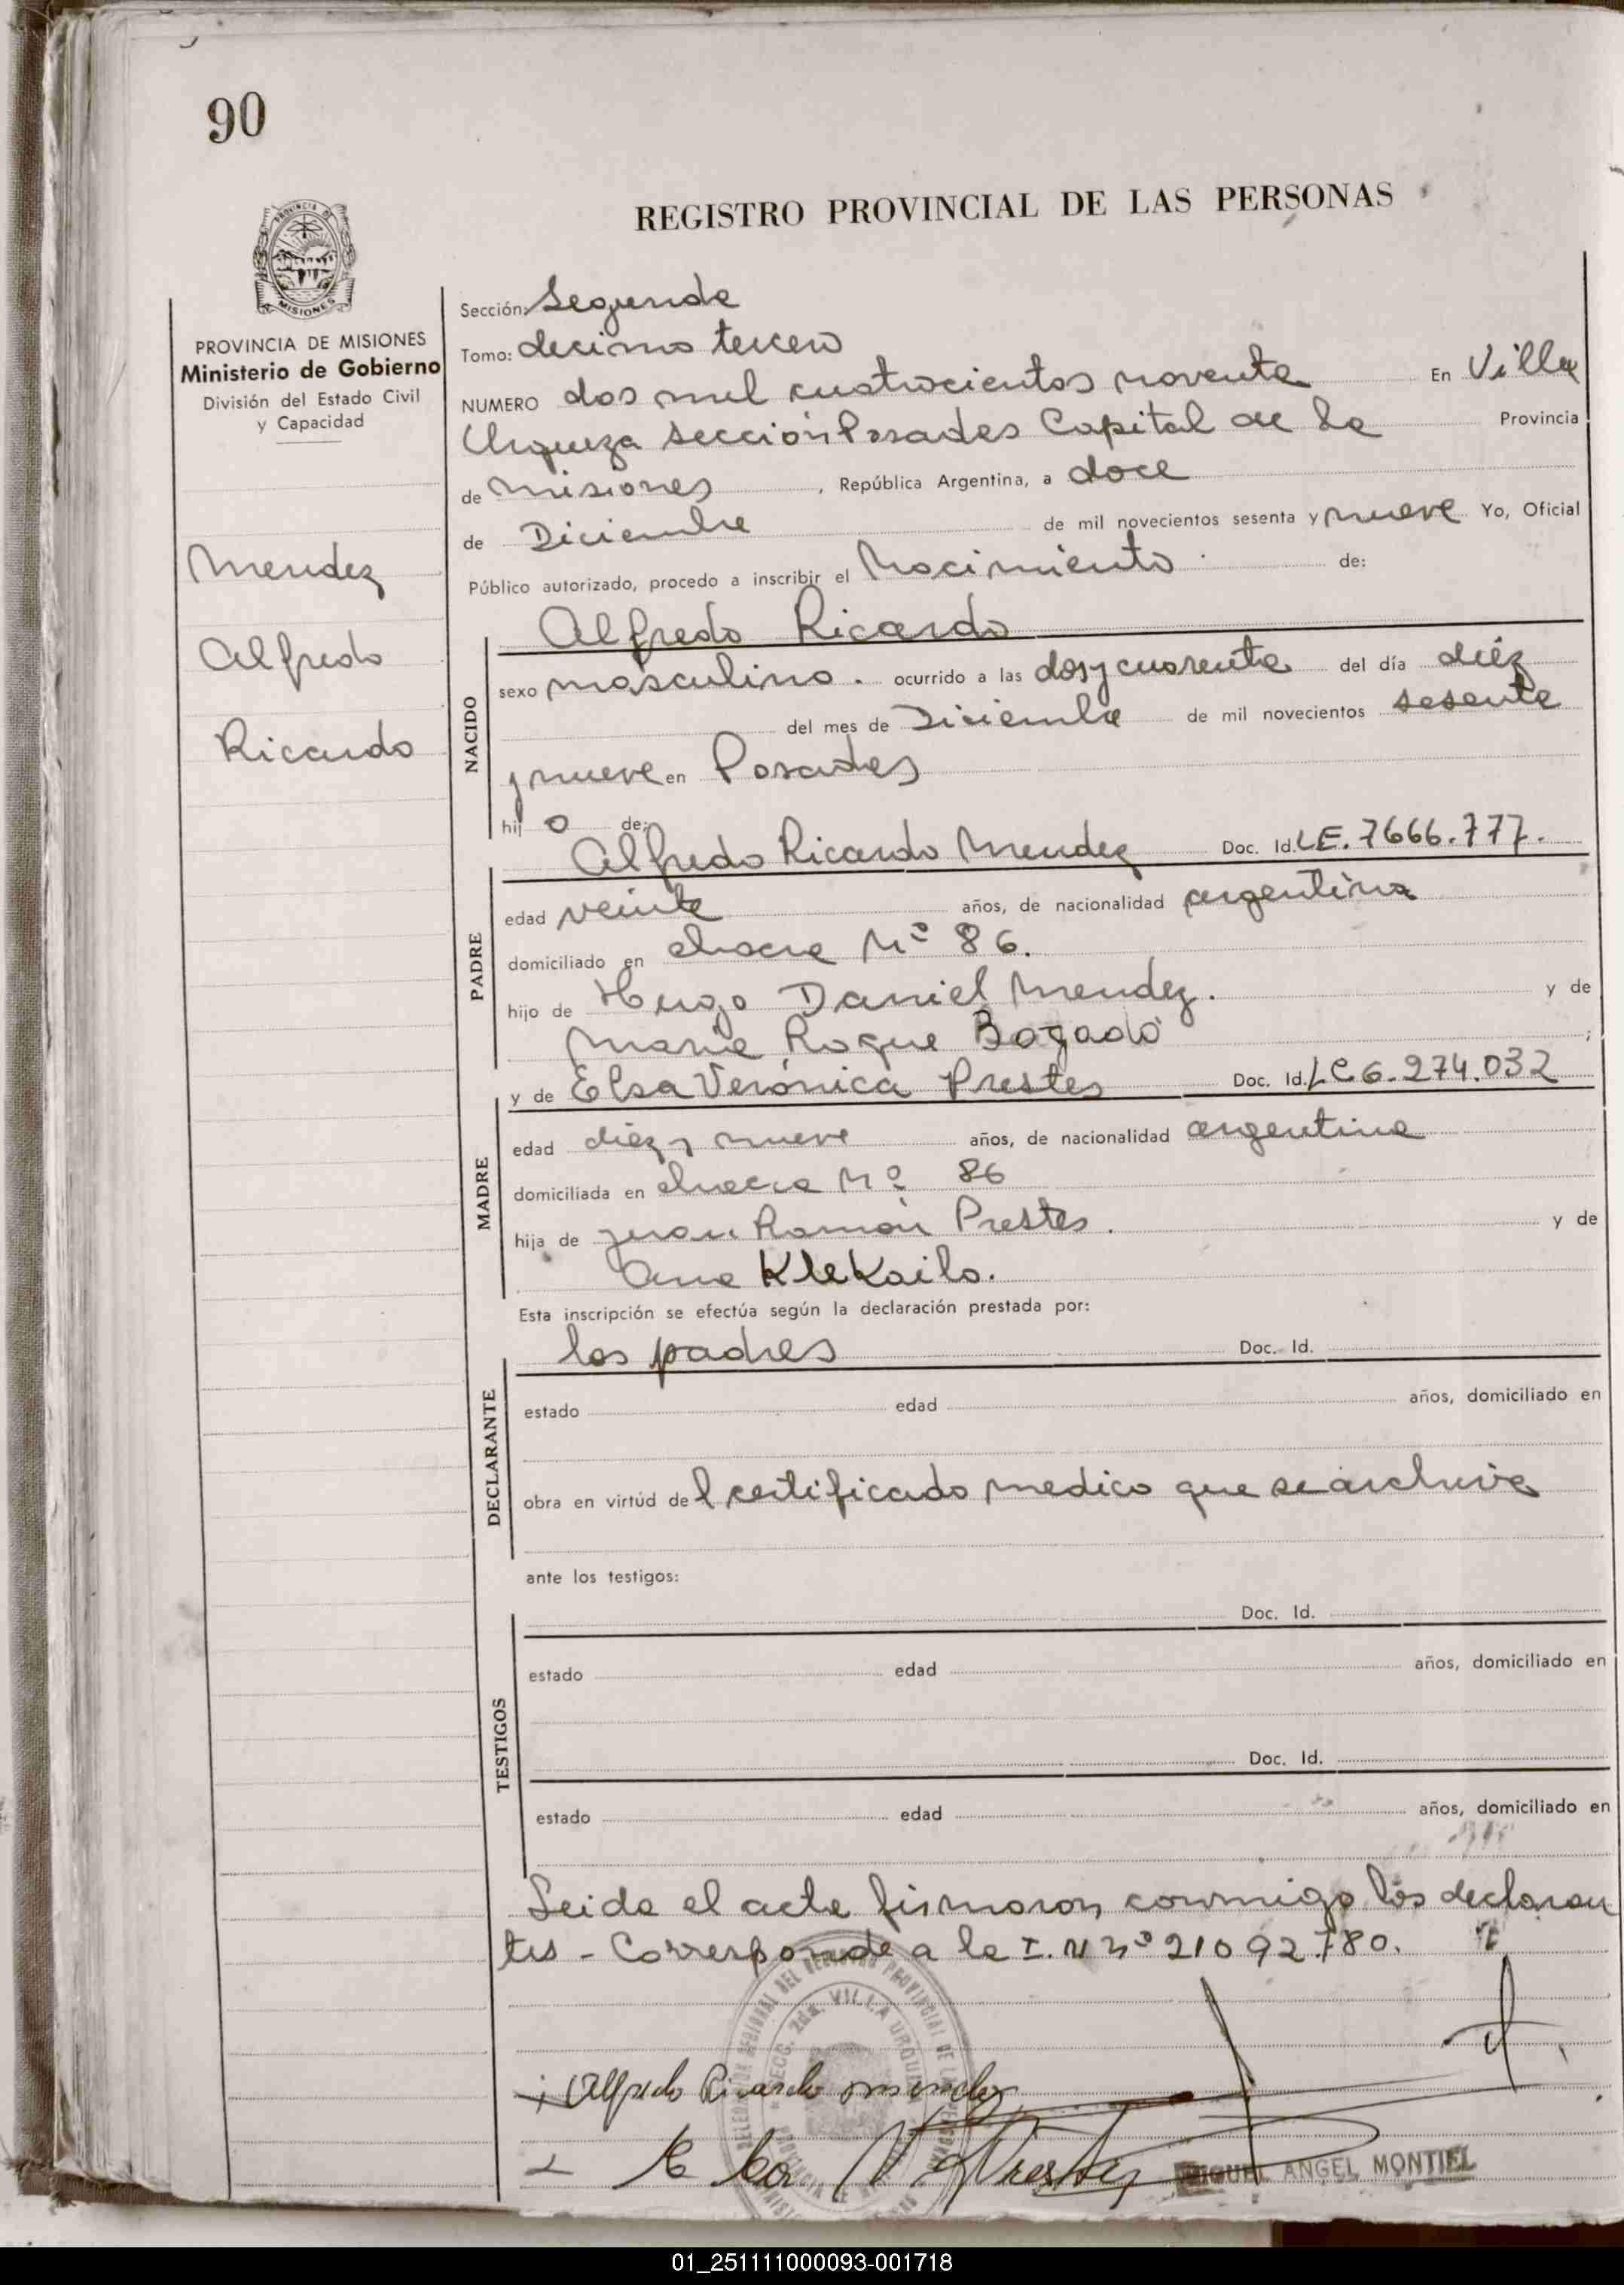 90
REGISTRO PROVINCIAL DE LAS PERSONAS
PROVINCIA DE MISIONES
Ministerio de Gobierno
División del Estado Civil
y Capacidad
Mendez
Alfredo
Ricardo
Sección: Segunda
Tomo: decimo tercero
NUMERO dos mil cuatrocientos noventa En Villa
Urquiza Sección Posadas Capital de la Provincia
de Misiones, República Argentina, a doce
de Diciembre de mil novecientos sesenta y nueve Yo, Oficial
Público autorizado, procedo a inscribir el Nacimiento de:
Alfredo Ricardo
NACIDO
sexo masculino. ocurrido a las dos y cuarenta del día diéz
del mes de Diciembre de mil novecientos sesenta
y nueve en Posadas
hijo de:
Alfredo Ricardo Mendez Doc. Id. LE. 7666.777.
PADRE
edad veinte años, de nacionalidad argentina
domiciliado en chacra Nº 86.
hijo de Hugo Daniel Mendez. y de
Maria Roque Bogado ;
y de Elsa Verónica Prestes Doc. Id. LC 6.274.032
MADRE
edad diéz y nueve años, de nacionalidad argentina
domiciliada en chacra Nº 86
hija de Juan Ramón Prestes. y de
Ana Klekailo.
Esta inscripción se efectúa según la declaración prestada por:
los padres Doc. Id.
DECLARANTE
estado edad años, domiciliado en
obra en virtúd del certificado medico que se archiva
ante los testigos:
Doc. Id.
TESTIGOS
estado edad años, domiciliado en
Doc. Id.
estado edad años, domiciliado en
Leida el acta firmaron conmigo los declaran
tes - Corresponde a la I. N nº 21092780.
SECC. 2da. VILLA URQUIZA
Alfredo Ricardo mendez
Elsa V. Prestes
MIGUEL ANGEL MONTIEL
01_251111000093-001718